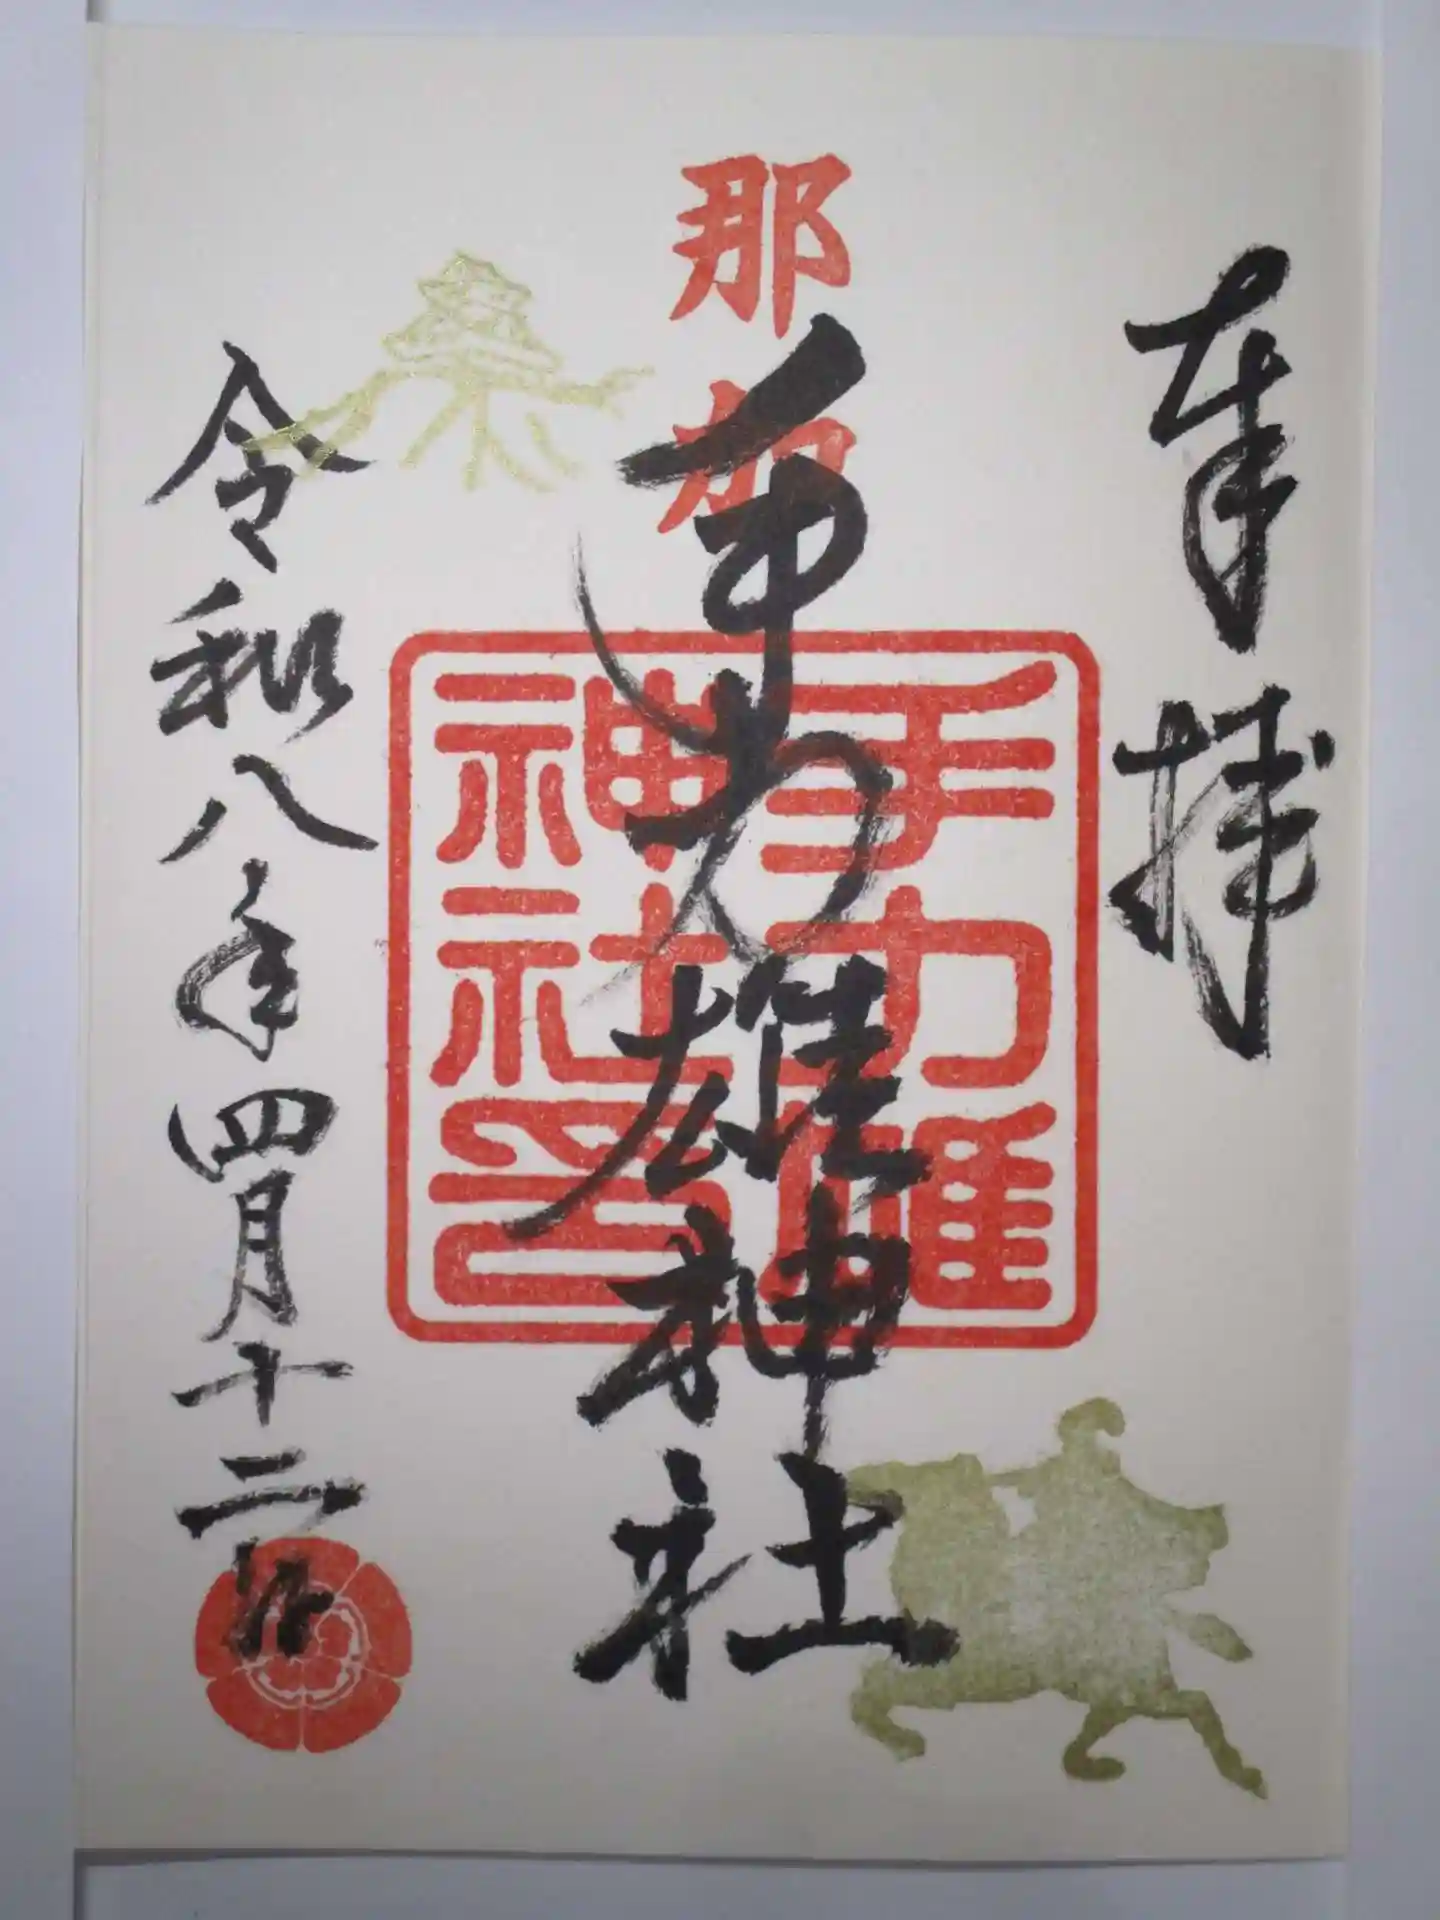 奉拝
那加
手力雄神社
手力雄
神社印
令和八年四月十二日